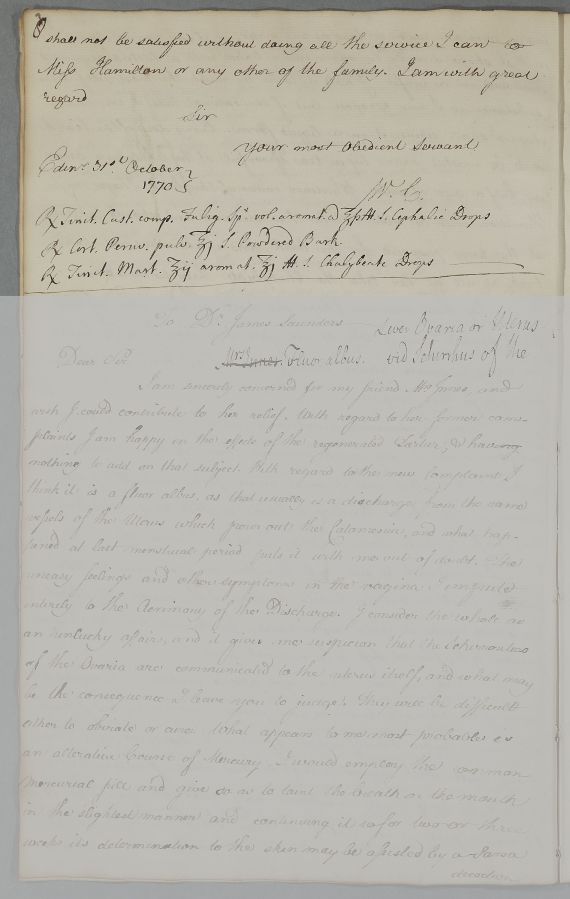 shall not be satisfied without doing all the service I can to
Miss Hamilton or any other of the family. I am with great
regard
Sir
Your most Obedient Servant
Edinr 31st October
1770
W. C.
℞ Tinct. Cast. comp. Fulig. Spt. vol. aromat. a ʒß S. Cephalic Drops
℞ Cort. Peruv. pulv. ʒj S. Powdered Bark
℞ Tinct. Mart. ʒij aromat. ʒj S. Chalybeate Drops
To Dr. James Saunders
Liver Ovaria or Uterus
Mrs Innes. Fluor albus. vid Schirrhus of the
Dear Sir
I am sincerely concerned for my friend Mrs Innes, and
wish I could contribute to her relief. With regard to her former com-
plaints I am happy in the effects of the regenerated Tartar, & having
nothing to add on that subject. With regard to the new Complaint I
think it is a fluor albus, as that usually is a discharge from the same
vessels of the Uterus which pour out the Catamenia, and what hap-
pened at last menstrual period puts it with me out of doubt. The
uneasy feelings and other symptoms in the vagina I impute
entirely to the Acrimony of the Discharge. I consider the whole as
an unlucky affair, and it gives me suspicion that the Schirrosities
of the Ovaria are communicated to the uterus itself, and what may
be the consequence I leave you to judge. They will be difficult
either to obviate or cure. What appears to me most probable is
an alterative Course of Mercury. I would employ the common
mercurial pill and give so as to taint the breath or the mouth
in the slightest manner and continuing it so for two or three
weeks its determination to the skin may be assisted by a Sarsa
decoction